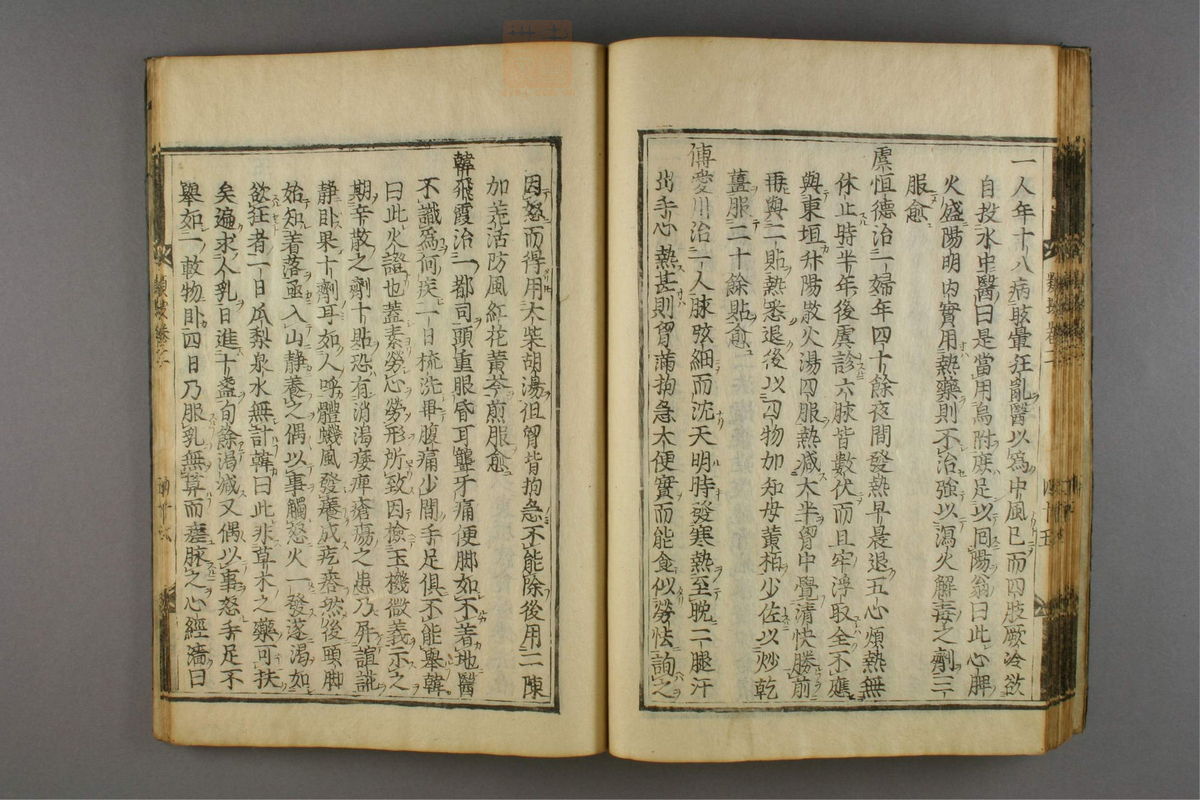 一人年十八病眩暈狂亂醫以爲中風已而四肢厥冷欲
自投水中醫曰是當用烏附庶足以囘陽翁曰此心脾
火盛陽明内實用熱藥則不治強以瀉火解毒之劑三
服愈
虞恒德治一婦年四十餘夜間發熱早晨退五心煩熱無
休止時半年後虞診六脉皆數伏而且牢浮取全不應
與東垣升陽散火湯四服熱減大半胷中覺清快勝前
再與二貼熱悉退後以四物加知母黄栢少佐以炒乾
薑服二十餘貼愈
傅愛川治一人脉弦細而沈天明時發寒熱至晩二腿汗
出手心熱甚則胷滿拘急大便實而能食似勞怯詢之
因怒而得用大柴胡湯但胷背拘急不能除後用二陳
加羌活防風紅花黄芩煎服愈
韓飛霞治一都司頭重眼昏耳聾牙痛便脚如不着地醫
不識爲何疾一日梳洗畢腹痛少間手足俱不能舉韓
曰此火證也蓋素勞心勞形所致因檢玉機微義示之
期辛散之劑十貼恐有消渴痿痺瘡瘍之患乃屏諠譁
静卧果十劑耳如人呼體蟣風發癢成疙瘩然後頭脚
始知着落亟入山静養之偶以事觸怒火一發遂渴如
欲狂者一日瓜梨泉水無計韓曰此非草木之藥可扶
矣遍求人乳日進十盞旬餘渴減又偶以事怒手足不
舉如一軟物卧四日乃服乳無算而瘥脉之心經濇曰